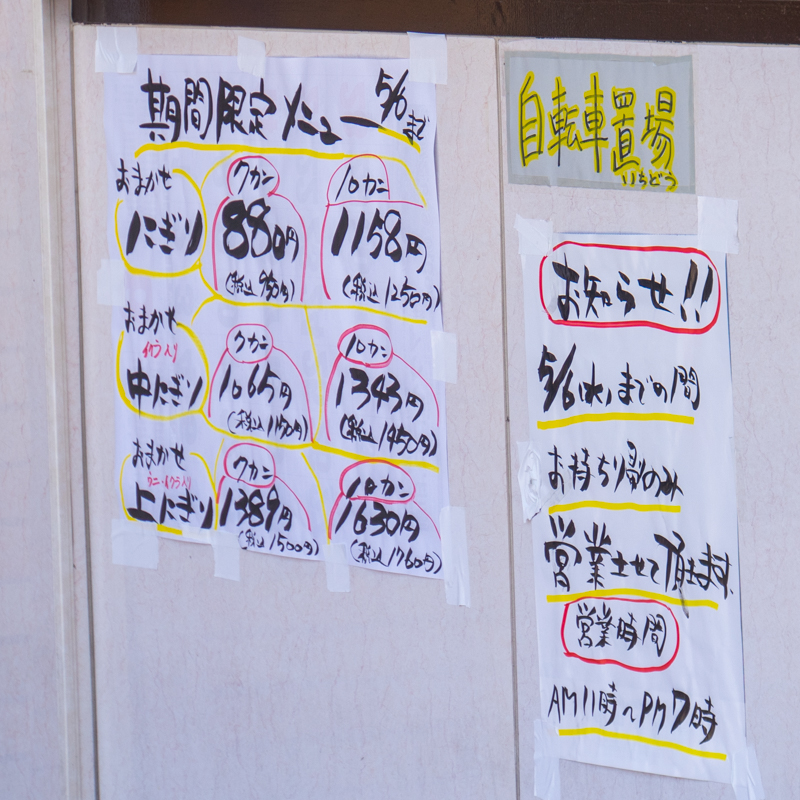 期間限定メニュー 5/6まで
おまかせ
にぎり
7カン
880円
(税込950円)
10カン
1158円
(税込1250円)
おまかせ
イクラ入り
中にぎり
7カン
1065円
(税込1150円)
10カン
1343円
(税込1450円)
おまかせ
ウニ・イクラ入り
上にぎり
7カン
1389円
(税込1500円)
10カン
1630円
(税込1760円)
自転車置場
いちどう
お知らせ!!
5/6(水)までの間
お持ち帰りのみ
営業させて頂きます
営業時間
AM11時〜PM7時